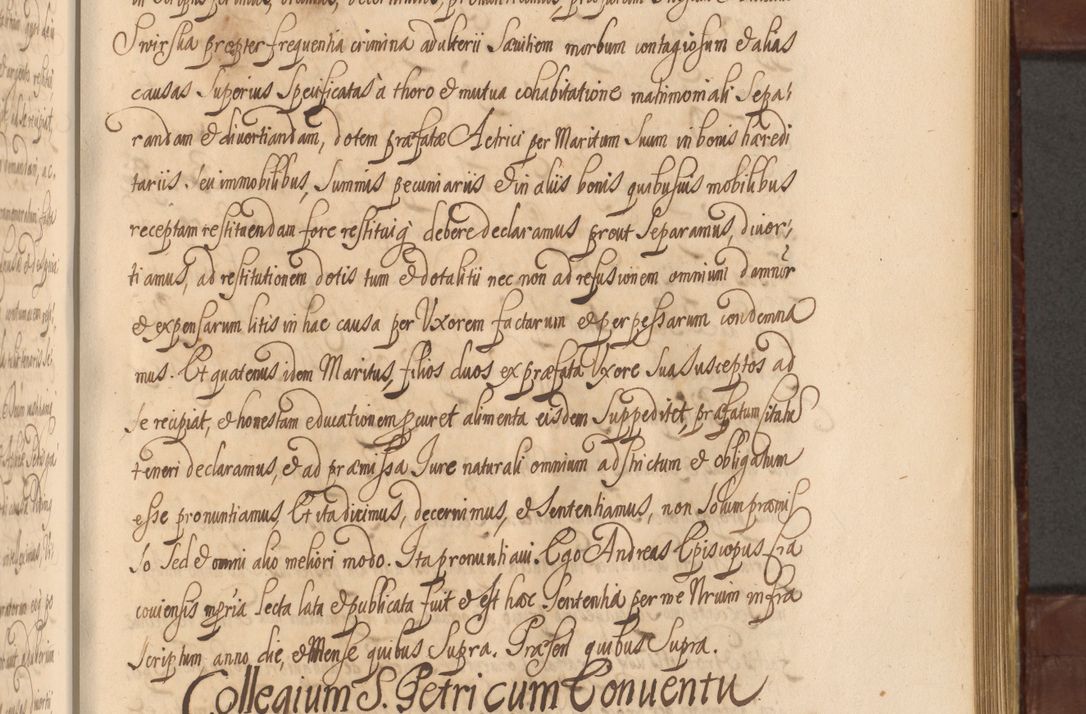 Swirska propter frequentia crimina adulterii Sævitiem morbum contagiosum & alias
causas Superius Specificatas à thoro & mutua cohabitatione matrimoniali Sepa,
randam & divortiandam, dotem præfatæ Actrici per Maritum Suum in bonis hæredi
tariis. Seu immobilibus, Summis pecuniariis & in aliis bonis quibusvis mobilibus
receptam restituendam fore restituiq debere declaramus prout Separamus, divor,
tiamus, ad restitutionem dotis tum & dotalitii nec non ad refusionem omnium damnor
& expensarum litis in hac causa per Uxorem factarum & perpessarum condemna
mus. Et quatenus idem Maritus, filios duos ex præfata Uxore Sua Susceptos ad
Se recipiat, & honestam educationem pcuret alimenta eisdem Suppeditet, præfatum
teneri declaramus, & ad præmissa Jure naturali omnium adstrictum & obligatum
esse pronuntiamus, Et ita dicimus, decernimus, & Sententiamus, non Solum præmis
So Sed & omni alio meliori modo. Ita pronuntiavi. Ego Andreas Episcopus Cra
coviensis mpria Lecta lata & publicata fuit & est hæc Sententia per me Nrium infra
Scriptum anno, die, & Mense quibus Supra. Præsen quibus Supra.
Collegium S. Petri cum Conventu